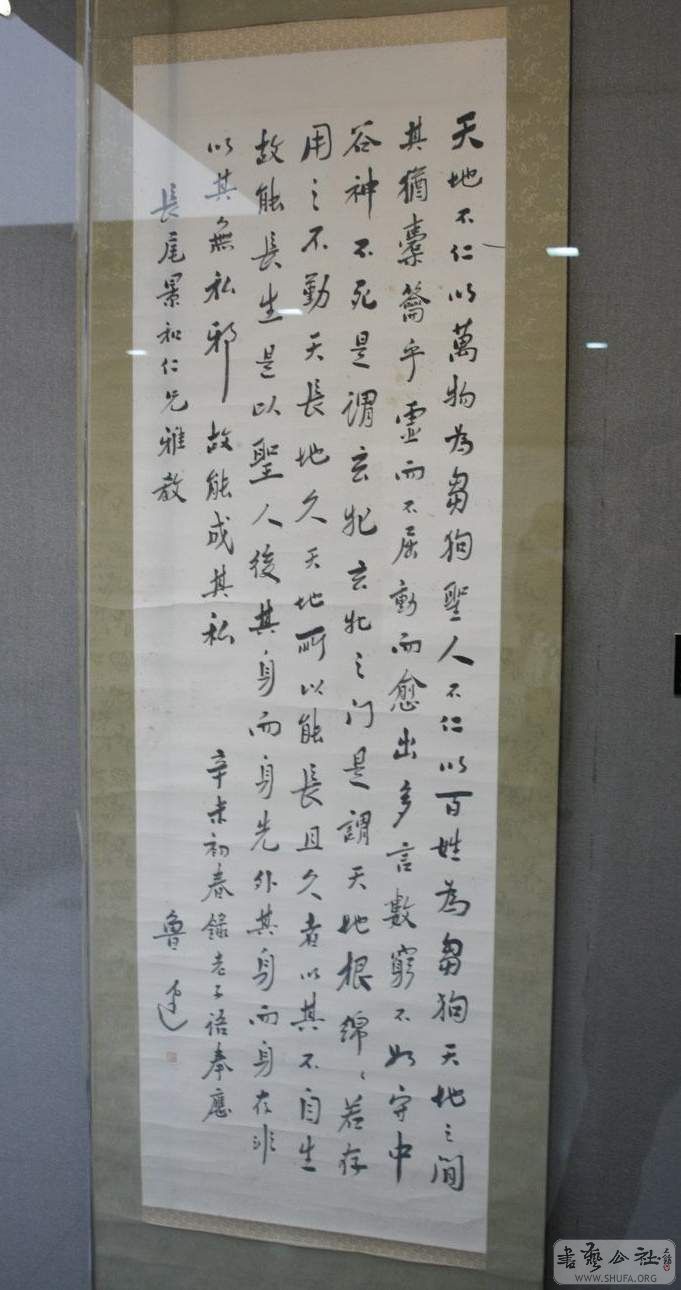 天地不仁以萬物為芻狗聖人不仁以百姓為芻狗天地之間
其猶橐籥乎虛而不屈動而愈出多言數窮不如守中
谷神不死是謂玄牝玄牝之门是謂天地根綿〻若存
用之不勤天長地久天地所以能長且久者以其不自生
故能長生是以聖人後其身而身先外其身而身存非
以其無私邪故能成其私 辛未初春錄老子語奉應
長尾景和仁兄雅教 魯迅
書藝公社
WWW.SHUFA.ORG